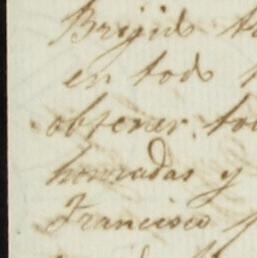 Brijido
en todo
obtener to
honradas y
Francisco